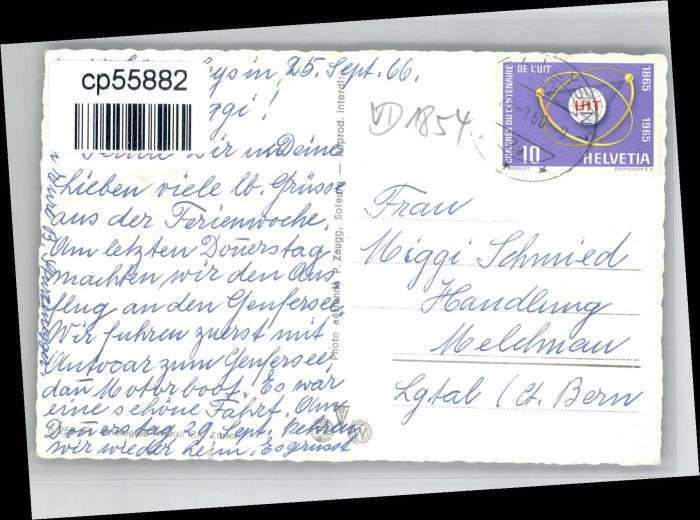 cp55882
in 25. Sept. 66.
wir und Deine
Lieben viele lb. Grüsse
aus der Ferienwoche.
Am letzten Doñerstag
machten wir den Aus
flug an den Genfersee.
Wir fuhren zuerst mit
Autocar zum Genfersee,
dañ Motorboot. Es war
eine schöne Fahrt. Am
Doñerstag 29. Sept. kehren
wir wieder heim. Es grüsst
Photo P. Zaugg, Soleure — Reprod. interdite
VD 1854
CONGRÈS DU CENTENAIRE
DE L'UIT
1865
1965
UIT
10
HELVETIA
COURVOISIER S.A.
Frau
Miggi Schmied
Handlung
Melchnau
Lgtal / Ct. Bern